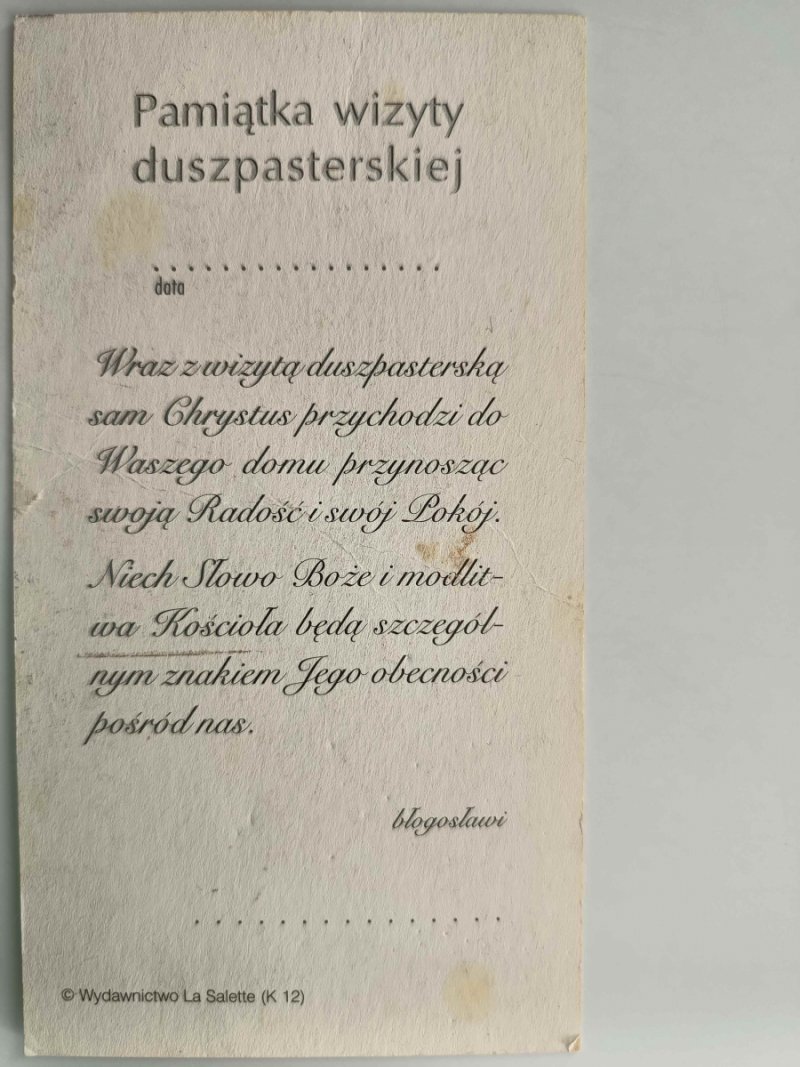 Pamiątka wizyty
duszpasterskiej
.................
data
Wraz z wizytą duszpasterską
sam Chrystus przychodzi do
Waszego domu przynosząc
swoją Radość i swój Pokój.
Niech Słowo Boże i modlit-
wa Kościoła będą szczegól-
nym znakiem Jego obecności
pośród nas.
błogosławi
...............
© Wydawnictwo La Salette (K 12)